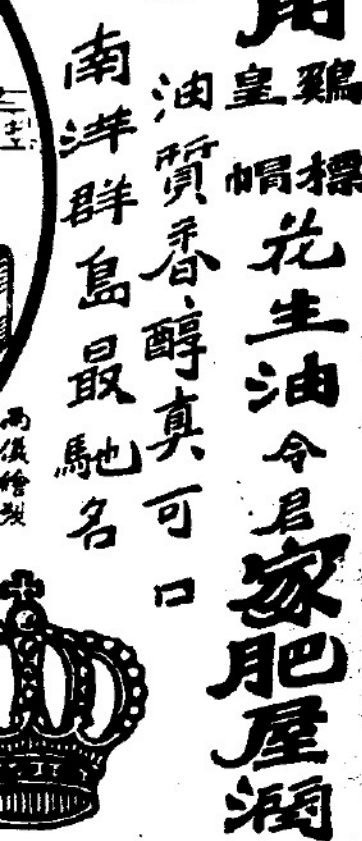 用
鷄標
皇帽
花生油令君家肥屋潤
油質香醇真可口
南洋群島最馳名
兩儀繪製